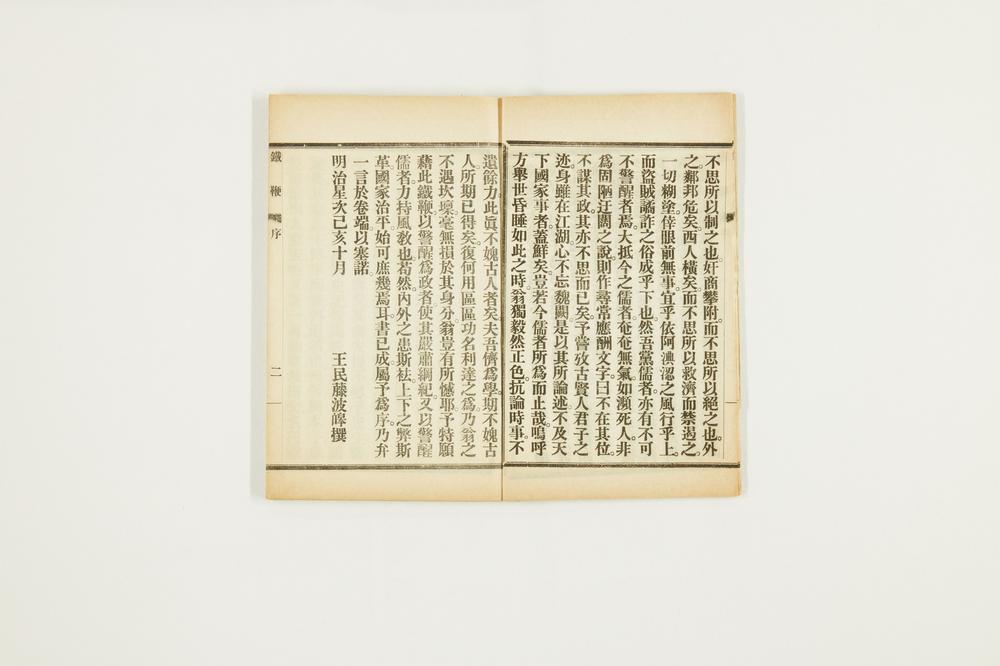 不思所以制之也。奸商攀附。而不思所以絕之也。外
之。鄰邦危矣。西人橫矣。而不思所以救濟而禁遏之。
一切糊塗。倖眼前無事。宜乎依阿淟涊之風行乎上。
而盜賊譎詐之俗成乎下也。然吾黨儒者。亦有不可
不警醒者焉。大抵今之儒者。奄奄無氣。如瀕死人。非
爲固陋迂闊之說。則作尋常應酬文字。曰不在其位。
不謀其政。其亦不思而已矣。予嘗攷古賢人君子之
迹。身雖在江湖。心不忘魏闕。是以其所論述。不及天
下國家事者。蓋鮮矣。豈若今儒者所爲而止哉。嗚呼
方舉世昏睡如此之時。翁獨毅然正色。抗論時事。不
遺餘力。此眞不媿古人者矣。夫吾儕爲學。期不媿古
人。所期已得矣。復何用區區功名利達之爲。乃翁之
不遇坎壈。毫無損於其身分。翁豈有所憾耶。予特願
藉此鐵鞭。以警醒爲政者。使其嚴肅綱紀。又以警醒
儒者。力持風敎也。苟然。內外之患斯袪。上下之弊斯
革。國家治平。始可庶幾焉耳。書已成。屬予爲序。乃弁
一言於卷端。以塞諾。
明治星次己亥十月
王民藤波皞撰
鐵鞭 序 二